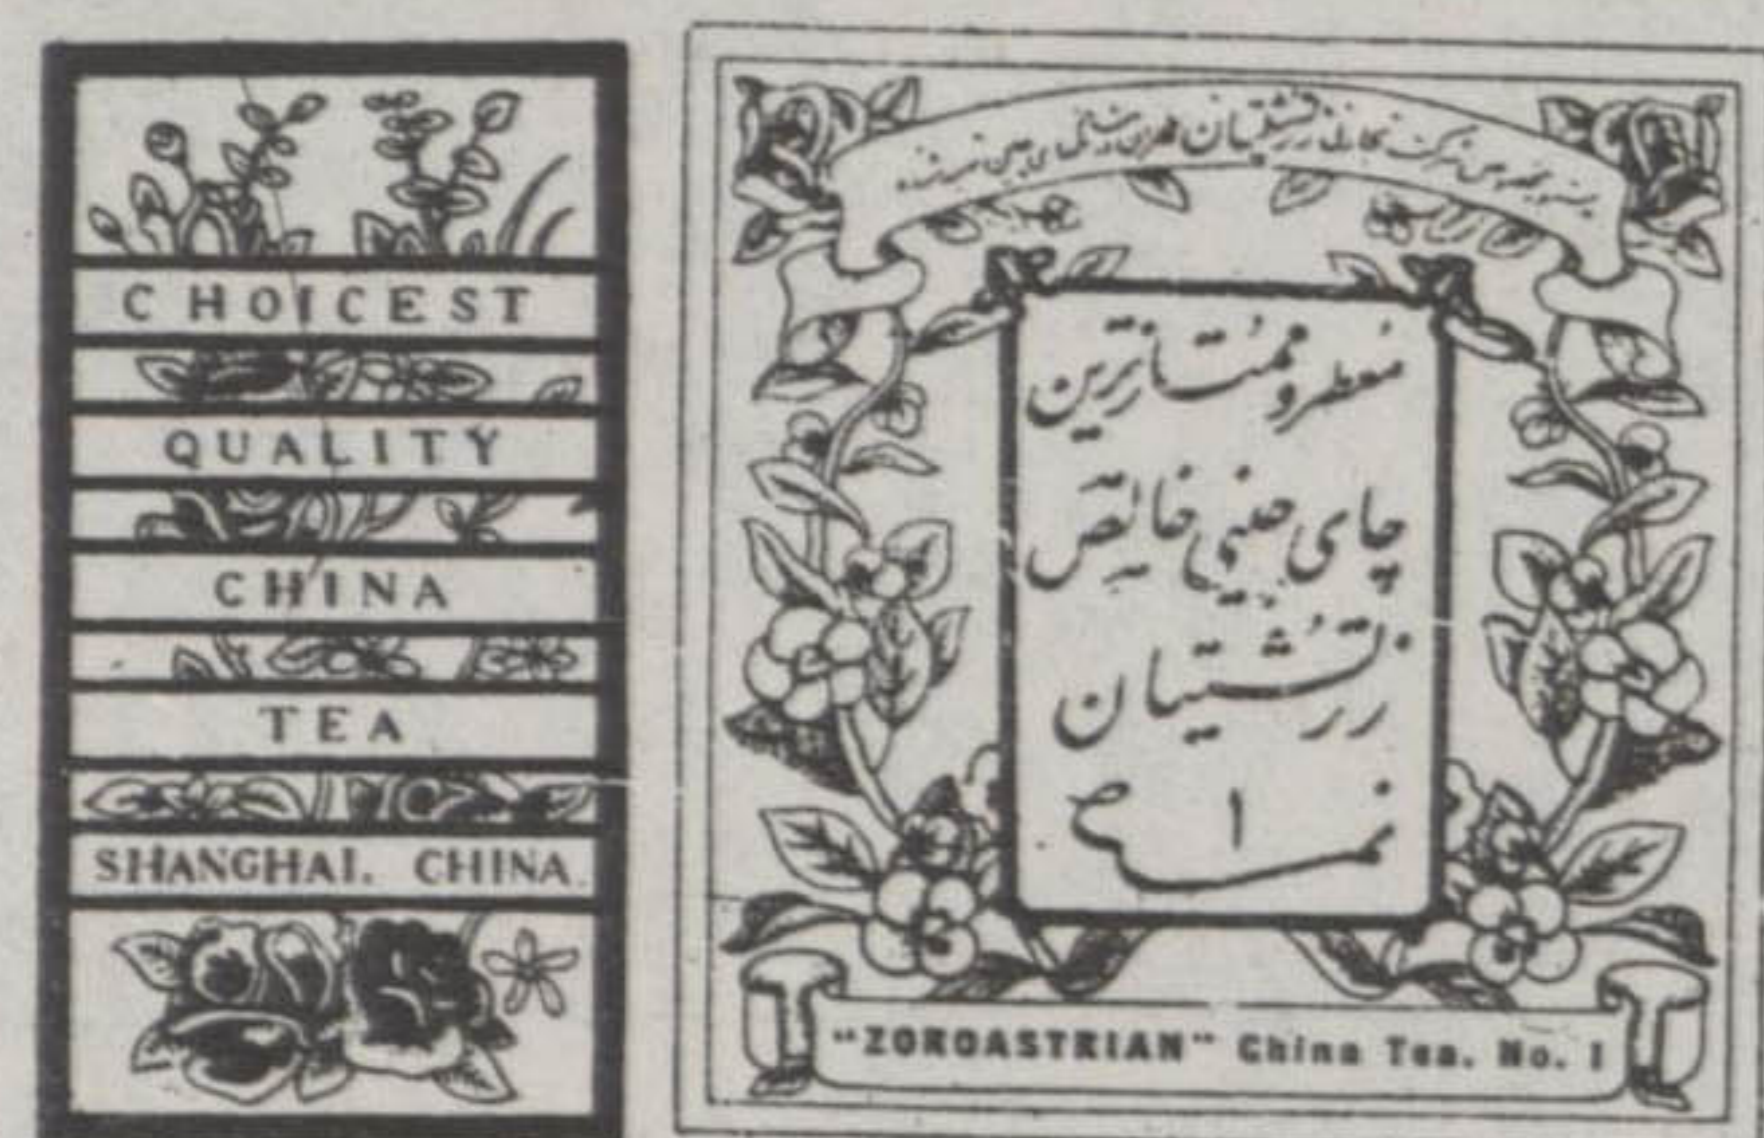 CHOICEST
QUALITY
CHINA
TEA
SHANGHAI. CHINA.
شرکت تجارتی زرتشتیان
معطر و ممتازترین
چای چینی خالص
زرتشتیان
نمره ۱
"ZOROASTRIAN" China Tea. No. 1